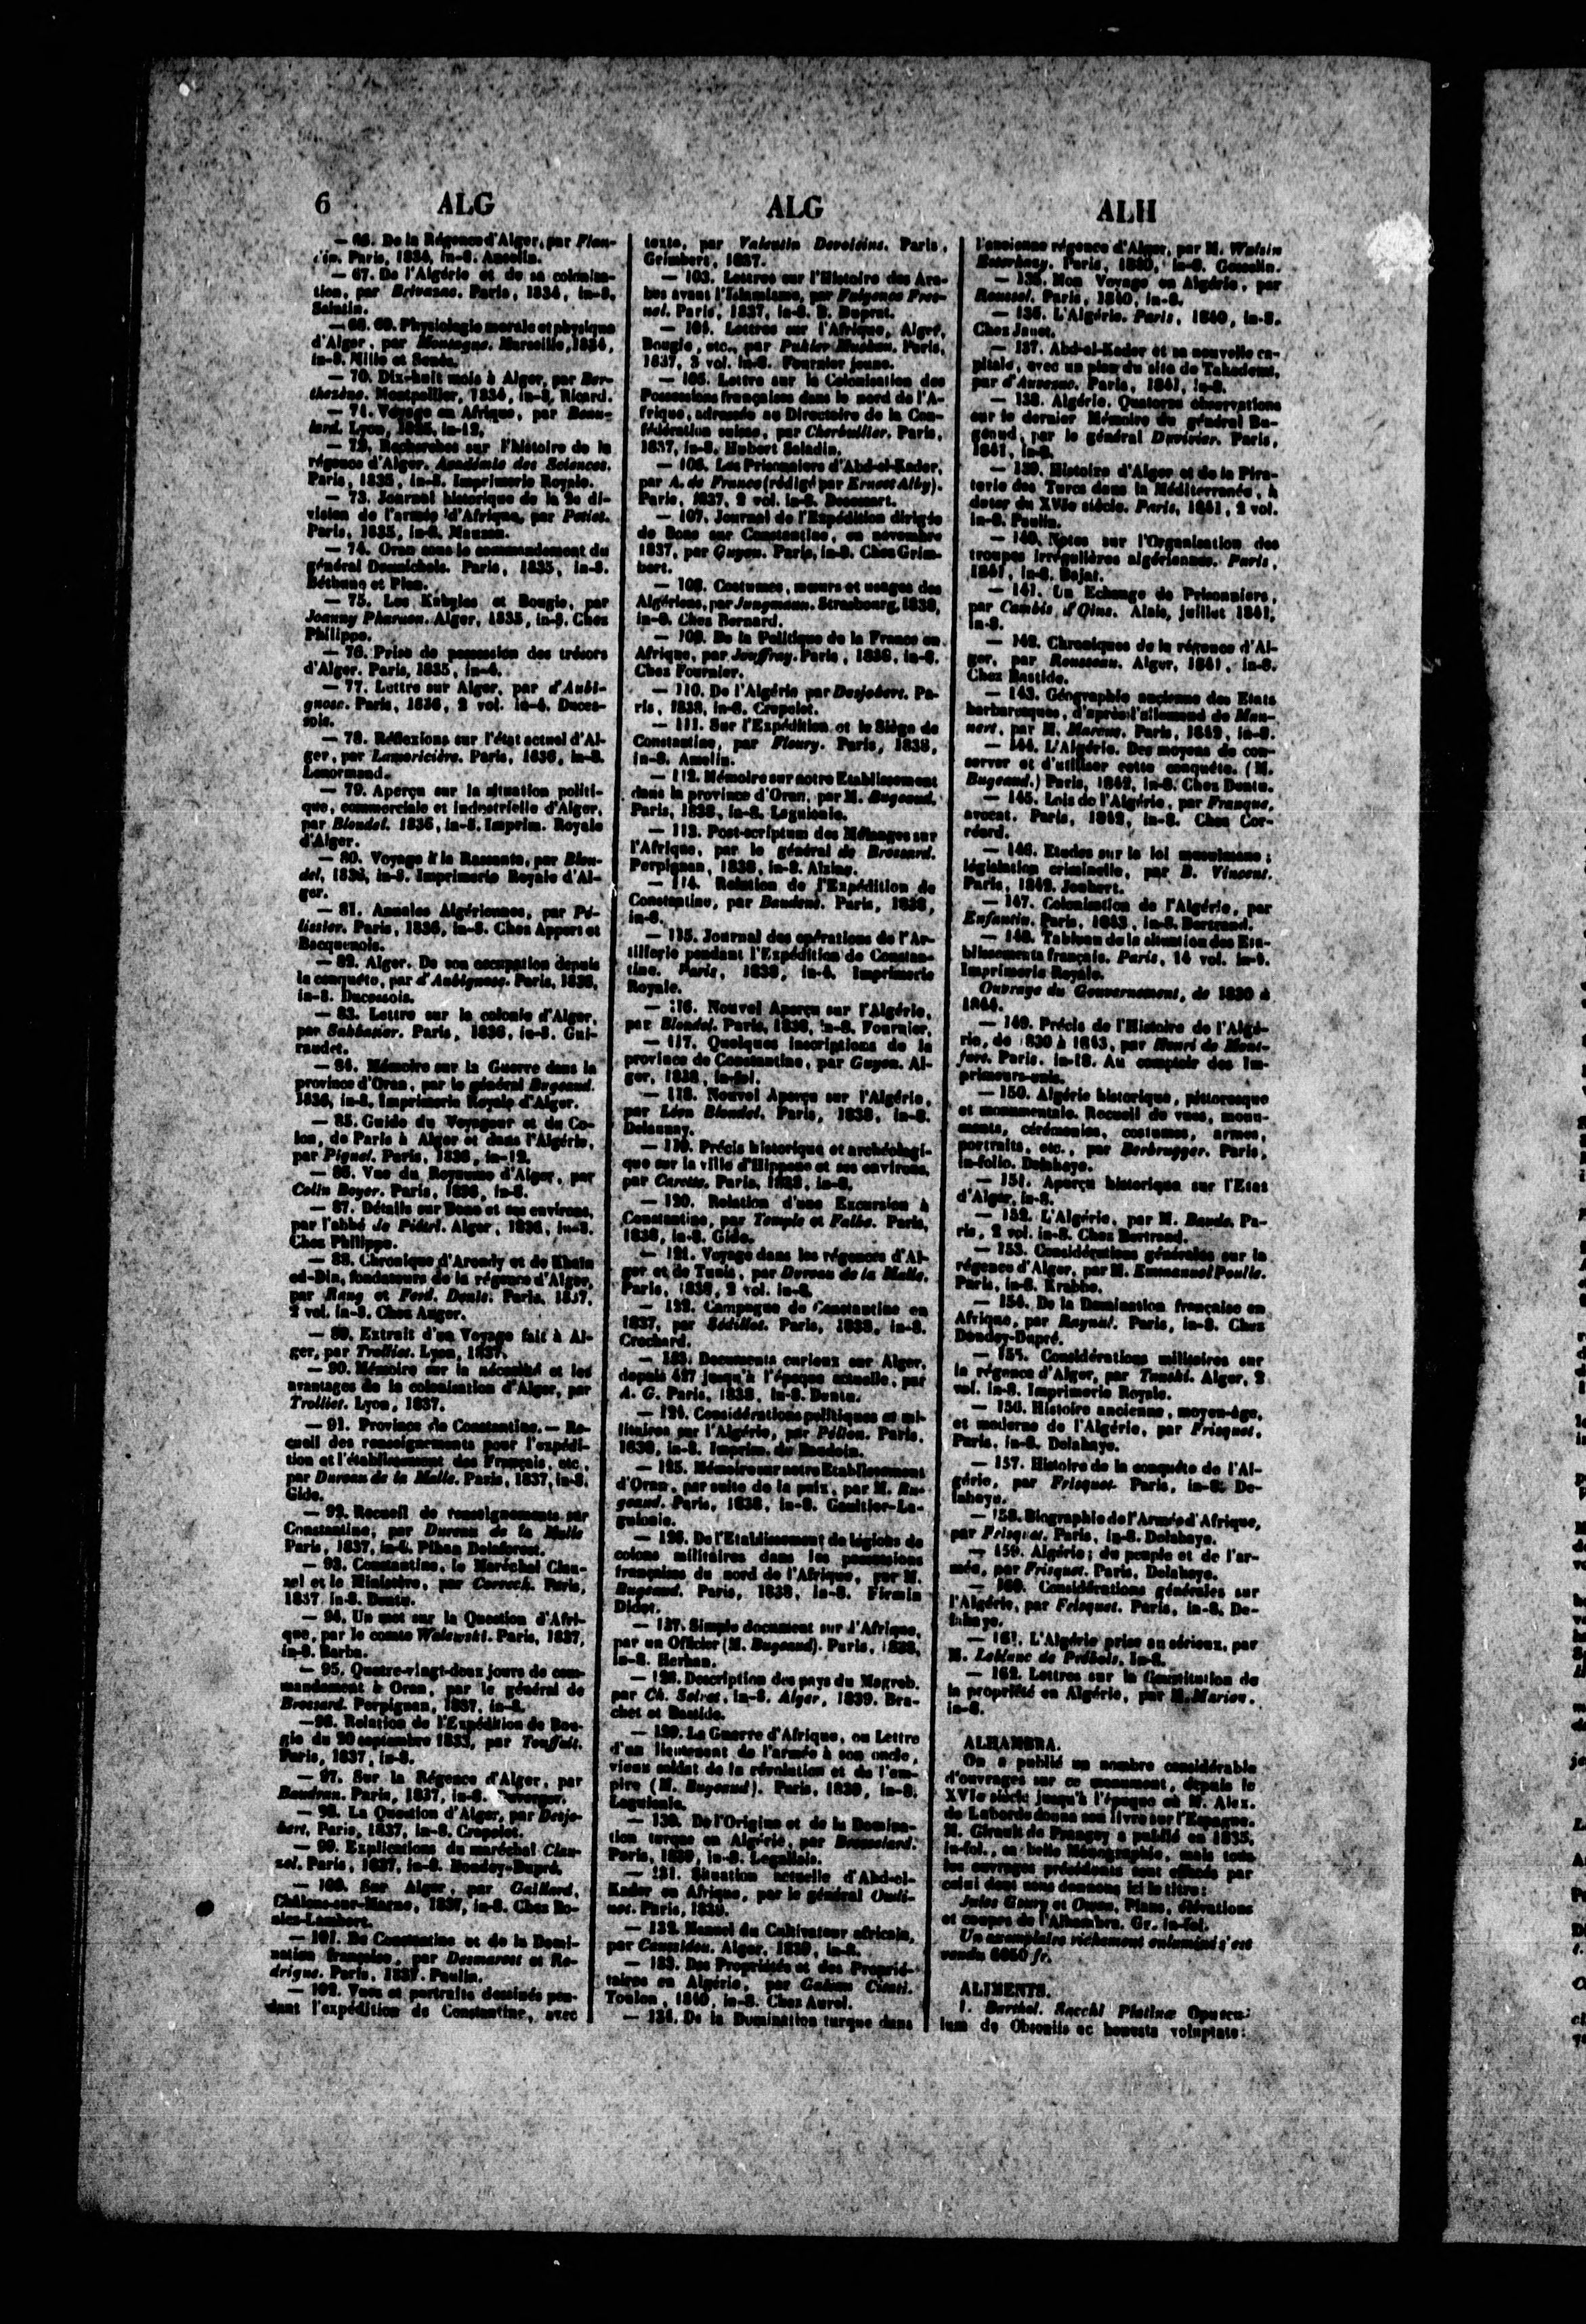 6 ALG ALG ALH
— 66. De la Régence d'Alger, par Flan-
din. Paris, 1834, in-8. Anselin.
— 67. De l'Algérie et de sa colonisa-
tion, par Brivazac. Paris, 1834, in-8.
— 68. 69. Physiologie morale et physique
d'Alger, par Montagne. Marseille, 1834,
in-8. Mille et Senés.
— 70. Dix-huit mois à Alger, par Ber-
thezène. Montpellier, 1834, in-8. Ricard.
— 71. Voyage en Afrique, par
Lyon, 1835, in-12.
— 72. Recherches sur l'histoire de la
régence d'Alger. Académie des Sciences.
Paris, 1835, in-8. Imprimerie Royale.
— 73. Journal historique de la 2e di-
vision de l'armée d'Afrique, par Petiet.
Paris, 1835, in-8.
— 74. Oran sous le commandement du
général Desmichels. Paris, 1835, in-8.
Béthune et Plon.
— 75. Les Kabyles et Bougie, par
Joanny Pharaon. Alger, 1835, in-8. Chez
Philippe.
— 76. Prise de possession des trésors
d'Alger. Paris, 1835, in-4.
— 77. Lettre sur Alger, par d'Aubi-
gnosc. Paris, 1836, 2 vol. in-4. Duces-
sois.
— 78. Réflexions sur l'état actuel d'Al-
ger, par Lamoricière. Paris, 1836, in-8.
Lenormand.
— 79. Aperçu sur la situation politi-
que, commerciale et industrielle d'Alger,
par Blondel. 1836, in-8. Imprim. Royale
d'Alger.
— 80. Voyage à la Rassauta, par Blon-
del, 1836, in-8. Imprimerie Royale d'Al-
ger.
— 81. Annales Algériennes, par Pé-
lissier. Paris, 1836, in-8. Chez Appert et
Bacquenois.
— 82. Alger. De son occupation depuis
la conquête, par d'Aubignosc. Paris, 1836,
in-8. Ducessois.
— 83. Lettre sur la colonie d'Alger,
par Sabbatier. Paris, 1836, in-8. Gui-
raudet.
— 84. Mémoire sur la Guerre dans la
province d'Oran, par le général Bugeaud.
1836, in-8. Imprimerie Royale d'Alger.
— 85. Guide du Voyageur et du Co-
lon, de Paris à Alger et dans l'Algérie,
par Piquet. Paris, 1836, in-12.
— 86. Vue du Royaume d'Alger, par
Colin Boyer. Paris, 1836, in-8.
— 87. Détails sur Bone et ses environs,
par l'abbé de Piétri. Alger, 1836, in-8.
Chez Philippe.
— 88. Chronique d'Aroudy et de Khaïr
ed-Din, fondateurs de la régence d'Alger,
par Rang et Ferd. Denis. Paris, 1837,
2 vol. in-8. Chez Anger.
— 89. Extrait d'un Voyage fait à Al-
ger, par Trolliet. Lyon, 1837.
— 90. Mémoire sur la nécessité et les
avantages de la colonisation d'Alger, par
Trolliet. Lyon, 1837.
— 91. Province de Constantine. — Re-
cueil des renseignements pour l'expédi-
tion et l'établissement des Français, etc.,
par Dureau de la Malle. Paris, 1837, in-8.
Gide.
— 92. Recueil de renseignements sur
Constantine, par Dureau de la Malle
Paris, 1837, in-8. Pihan Delaforest.
— 93. Constantine, le Maréchal Clau-
zel et le Ministère, par Correch. Paris,
1837, in-8. Dentu.
— 94. Un mot sur la Question d'Afri-
que, par le comte Walewski. Paris, 1837,
in-8. Barba.
— 95. Quatre-vingt-deux jours de com-
mandement à Oran, par le général de
Brossard. Perpignan, 1837, in-8.
— 96. Relation de l'Expédition de Bou-
gie du 20 septembre 1833, par
Paris, 1837, in-8.
— 97. Sur la Régence d'Alger, par
Baudran. Paris, 1837, in-8. Duverger.
— 98. La Question d'Alger, par Desjo-
bert, Paris, 1837, in-8. Crapelet.
— 99. Explications du maréchal Clau-
zel. Paris, 1837, in-8. Dondey-Dupré.
— 100. Sur Alger, par Gaillard,
Châlons-sur-Marne, 1837, in-8. Chez Bo-
niez-Lambert.
— 101. De Constantine et de la Domi-
nation française, par Desmarest et Ro-
drigue. Paris, 1837. Paulin.
— 102. Vues et portraits dessinés pen-
dant l'expédition de Constantine, avec
texte, par Valentin Devoisins. Paris,
Grimbert, 1837.
— 103. Lettres sur l'Histoire des Ara-
bes avant l'Islamisme, par Fulgence Fres-
nel. Paris, 1837, in-8. B. Duprat.
— 104. Lettres sur l'Afrique, Alger,
Bougie, etc., par Pukler Muskau. Paris,
1837, 3 vol. in-8. Fournier jeune.
— 105. Lettre sur la Colonisation des
Possessions françaises dans le nord de l'A-
frique, adressée au Directoire de la Con-
fédération suisse, par Cherbuliier. Paris,
1837, in-8. Hubert Saladin.
— 106. Les Prisonniers d'Abd-el-Kader,
par A. de France (rédigé par Ernest Alby).
Paris, 1837, 2 vol. in-8. Desessart.
— 107. Journal de l'Expédition dirigée
de Bone sur Constantine, en novembre
1837, par Guyon. Paris, in-8. Chez Grim-
bert.
— 108. Costumes, mœurs et usages des
Algériens, par Jungmann. Strasbourg, 1838,
in-8. Chez Bernard.
— 109. De la Politique de la France en
Afrique, par Jouffroy. Paris, 1838, in-8.
Chez Fournier.
— 110. De l'Algérie par Desjobert. Pa-
ris, 1838, in-8. Crapelet.
— 111. Sur l'Expédition et le Siège de
Constantine, par Fleury. Paris, 1838,
in-8. Anselin.
— 112. Mémoire sur notre Etablissement
dans la province d'Oran, par M. Bugeaud.
Paris, 1838, in-8. Laguionie.
— 113. Post-scriptum des Mélanges sur
l'Afrique, par le général de Brossard.
Perpignan, 1838, in-8. Alzine.
— 114. Relation de l'Expédition de
Constantine, par Baudens. Paris, 1838,
in-8.
— 115. Journal des opérations de l'Ar-
tillerie pendant l'Expédition de Constan-
tine. Paris, 1838, in-4. Imprimerie
Royale.
— 116. Nouvel Aperçu sur l'Algérie,
par Blondel. Paris, 1838, in-8. Fournier.
— 117. Quelques inscriptions de la
province de Constantine, par Guyon. Al-
ger, 1838, in-fol.
— 118. Nouvel Aperçu sur l'Algérie,
par Léon Blondel. Paris, 1838, in-8.
Delaunay.
— 119. Précis historique et archéologi-
que sur la ville d'Hippone et ses environs,
par Carette. Paris, 1838, in-8.
— 120. Relation d'une Excursion à
Constantine, par Temple et Falbe. Paris,
1838, in-8. Gide.
— 121. Voyage dans les régences d'Al-
ger et de Tunis, par Dureau de la Malle.
Paris, 1838, 2 vol. in-8.
— 122. Campagne de Constantine en
1837, par Sédillot. Paris, 1838, in-8.
Crochard.
— 123. Documents curieux sur Alger,
depuis 427 jusqu'à l'époque actuelle, par
A. G. Paris, 1838, in-8. Dentu.
— 124. Considérations politiques et mi-
litaires sur l'Algérie, par Pélion. Paris,
1838, in-8. Imprim. de Baudoin.
— 125. Mémoire sur notre Etablissement
d'Oran, par suite de la paix, par M. Bu-
geaud. Paris, 1838, in-8. Gaultier-La-
guionie.
— 126. De l'Etablissement de légions de
colons militaires dans les possessions
françaises du nord de l'Afrique, par M.
Bugeaud. Paris, 1838, in-8. Firmin
Didot.
— 127. Simple document sur l'Afrique,
par un Officier (M. Bugeaud). Paris, 1838,
in-8. Herhan.
— 128. Description des pays du Magreb.
par Ch. Solvet, in-8. Alger, 1839. Bra-
chet et Bastide.
— 129. La Guerre d'Afrique, ou Lettre
d'un lieutenant de l'armée à son oncle,
vieux soldat de la révolution et de l'em-
pire (M. Bugeaud). Paris, 1839, in-8.
Laguionie.
— 130. De l'Origine et de la Domina-
tion turque en Algérie, par Brosselard.
Paris, 1839, in-8. Legallois.
— 131. Situation actuelle d'Abd-el-
Kader en Afrique, par le général Oudi-
not. Paris, 1839.
— 132. Manuel du Cultivateur africain,
par Alger, 1839, in-8.
— 133. Des Propriétés et des Proprié-
taires en Algérie, par
Toulon, 1840, in-8. Chez Aurel.
— 134. De la Domination turque dans
l'ancienne régence d'Alger, par M. Walsin
Esterhazy. Paris, 1840, in-8. Gosselin.
— 135. Mon Voyage en Algérie, par
Roussel. Paris, 1840, in-8.
— 136. L'Algérie. Paris, 1840, in-8.
Chez Janet.
— 137. Abd-el-Kader et sa nouvelle ca-
pitale, avec un plan du site de Takedemt,
par d'Avezac. Paris, 1841, in-8.
— 138. Algérie. Quatorze observations
sur le dernier Mémoire du général Bu-
geaud, par le général Duvivier. Paris,
1841, in-8.
— 139. Histoire d'Alger et de la Pira-
terie des Turcs dans la Méditerranée, à
dater du XVIe siècle. Paris, 1841, 2 vol.
in-8. Paulin.
— 140. Notes sur l'Organisation des
troupes irrégulières algériennes. Paris,
1841, in-8.
— 141. Un Echange de Prisonniers,
par Cambis d'Olns. Alais, juillet 1841,
in-8.
— 142. Chroniques de la régence d'Al-
ger, par Rousseau. Alger, 1841, in-8.
Chez Bastide.
— 143. Géographie ancienne des Etats
barbaresques, d'après l'allemand de Man-
nert, par M. Marcus. Paris, 1842, in-8.
— 144. L'Algérie. Des moyens de con-
server et d'utiliser cette conquête. (M.
Bugeaud.) Paris, 1842, in-8. Chez Dentu.
— 145. Lois de l'Algérie, par Franque,
avocat. Paris, 1842, in-8. Chez Cor-
réard.
— 146. Etudes sur la loi musulmane;
législation criminelle, par B. Vincent.
Paris, 1842. Joubert.
— 147. Colonisation de l'Algérie, par
Enfantin. Paris, 1843, in-8. Bertrand.
— 148. Tableau de la situation des Eta-
blissements français. Paris, 14 vol. in-4.
Imprimerie Royale.
Ouvrage du Gouvernement, de 1830 à
1844.
— 149. Précis de l'Histoire de l'Algé-
rie, de 1830 à 1843, par Henri de Mont-
fort. Paris. in-18. Au comptoir des Im-
primeurs-unis.
— 150. Algérie historique, pittoresque
et monumentale. Recueil de vues, monu-
ments, cérémonies, costumes, armes,
portraits, etc., par Berbrugger. Paris,
in-folio. Delahaye.
— 151. Aperçu historique sur l'Etat
d'Alger, in-8.
— 152. L'Algérie, par M. Baude. Pa-
ris, 2 vol. in-8. Chez Bertrand.
— 153. Considérations générales sur la
régence d'Alger, par M. Emmanuel Poulle.
Paris, in-8. Krabbe.
— 154. De la Domination française en
Afrique, par Raynal. Paris, in-8. Chez
Dondey-Dupré.
— 155. Considérations militaires sur
la régence d'Alger, par Alger, 2
vol. in-8. Imprimerie Royale.
— 156. Histoire ancienne, moyen-âge,
et moderne de l'Algérie, par Frisquet.
Paris, in-8. Delahaye.
— 157. Histoire de la conquête de l'Al-
gérie, par Frisquet. Paris, in-8. De-
lahaye.
— 158. Biographie de l'Armée d'Afrique,
par Frisquet. Paris, in-8. Delahaye.
— 159. Algérie; du peuple et de l'ar-
mée, par Frisquet. Paris, Delahaye.
— 160. Considérations générales sur
l'Algérie, par Frisquet. Paris, in-8. De-
lahaye.
— 161. L'Algérie prise au sérieux, par
M. Leblanc de Prébois. In-8.
— 162. Lettres sur la Constitution de
la propriété en Algérie, par M. Marion.
in-8.
ALHAMBRA.
On a publié un nombre considérable
d'ouvrages sur ce monument, depuis le
XVIe siècle jusqu'à l'époque où M. Alex.
de Laborde donna son livre sur l'Espagne.
M. Girault de Prangey a publié en 1835,
in-fol., sa belle Monographie, mais tous
les ouvrages précédents sont effacés par
celui dont nous donnons ici le titre:
Jules Goury et Owen, Plans, élévations
et coupes de l'Alhambra. Gr. in-fol.
Un exemplaire richement enluminé s'est
vendu 6050 fr.
ALIMENTS.
1. Barthol. Sacchi Platinæ Opuscu-
lum de Obsoniis ac honesta voluptate: